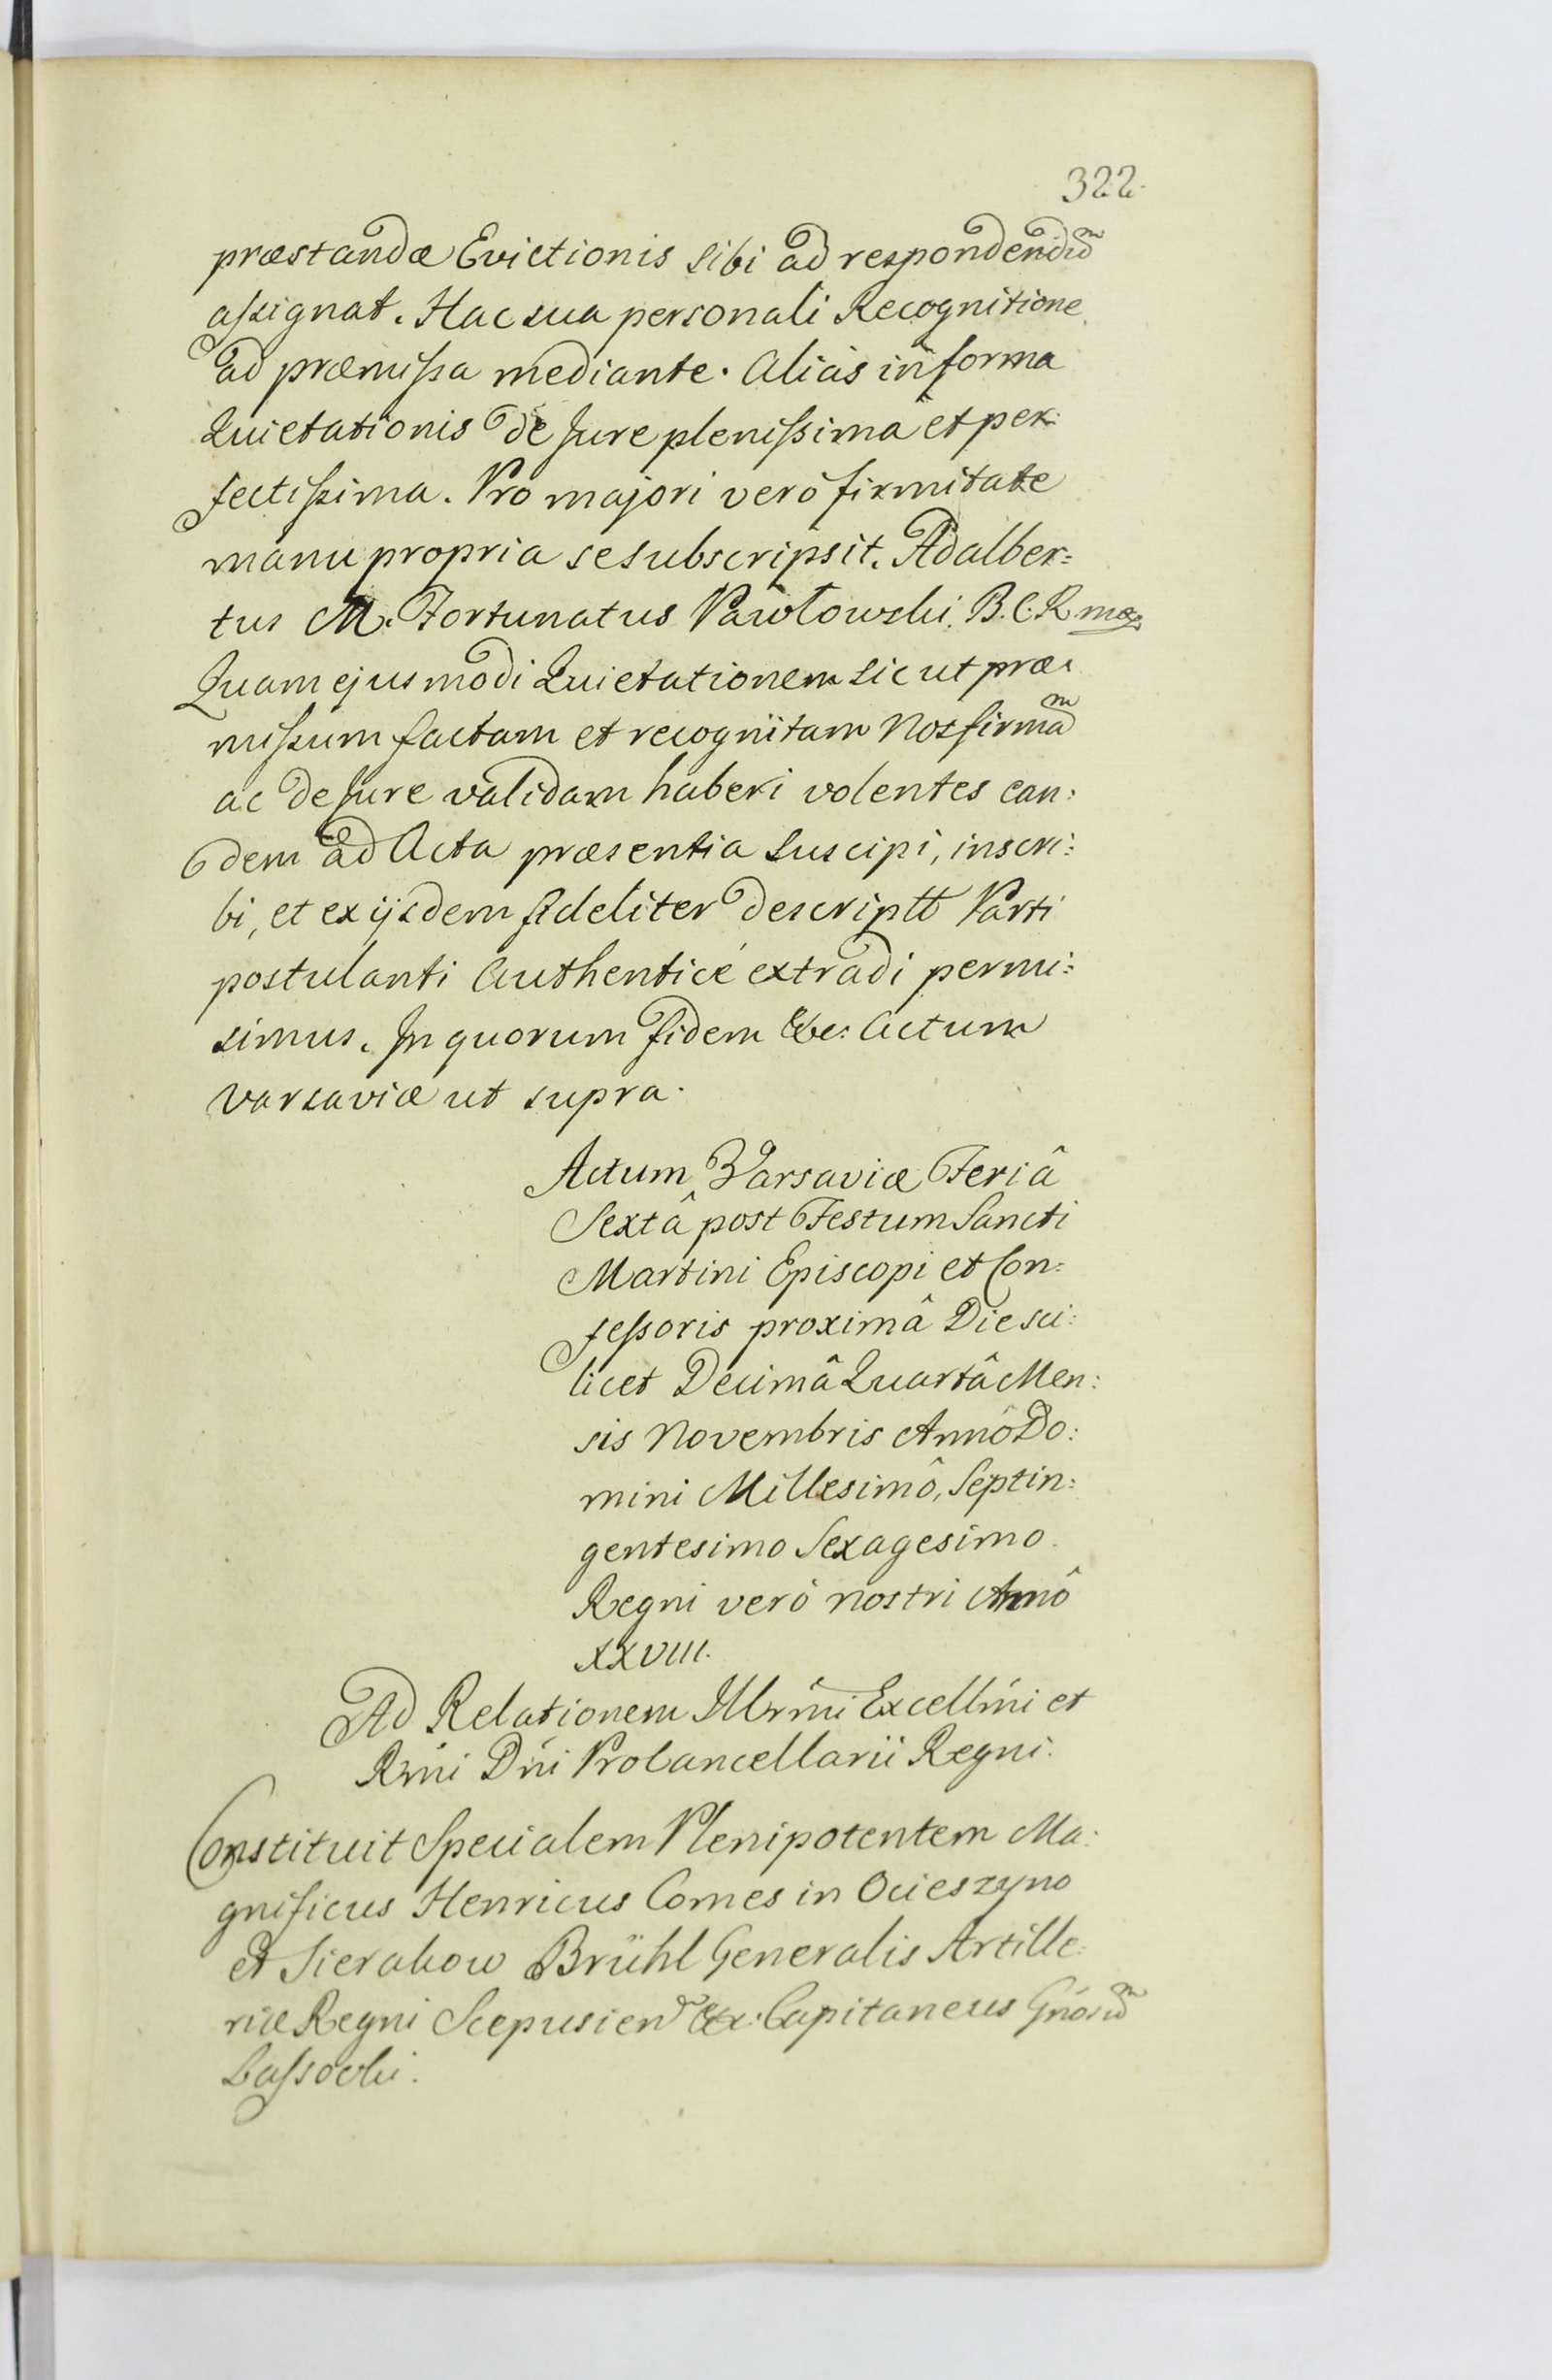 322.
præstandæ Evictionis sibi ad respondend̃u
assignat. Hac sua personali Recognitione
ad præmissa mediante. Aliàs in forma
Quietationis de Jure plenissima et per:
fectissima. Pro majori verò firmitate
manu propria se subscripsit. Adalber:
tus M. Fortunatus Pawłowski. B. C. R. mp
Quam ejusmodi Quietationem sic ut præ:
missum factam et recognitam Nos firmãm
ac de Jure validam haberi volentes ean:
dem ad Acta præsentia suscipi, inscri:
bi, et ex ijsdem fideliter descriptt Parti
postulanti Authenticè extradi permi:
simus. In quorum fidem &c: Actum
Varsaviæ ut supra.
Actum Varsaviæ Feriâ
Sextâ post Festum Sancti
Martini Episcopi et Con:
fessoris proximâ Die sci:
licet Decimâ Quartâ Men:
sis Novembris Annô Do:
mini Millesimô, Septin:
gentesimo Sexagesimo.
Regni verò nostri Annô
XXVIII.
Ad Relationem Illrm̃i Excellm̃i et
Rm̃i Dñi ProCancellarii Regni.
Constituit Specialem Plenipotentem Ma:
gnificus Henricus Comes in Ocieszyno
et Sierakow Brühl Generalis Artille:
riæ Regni Scepusien &c: Capitaneus Gñosum
Lassocki.